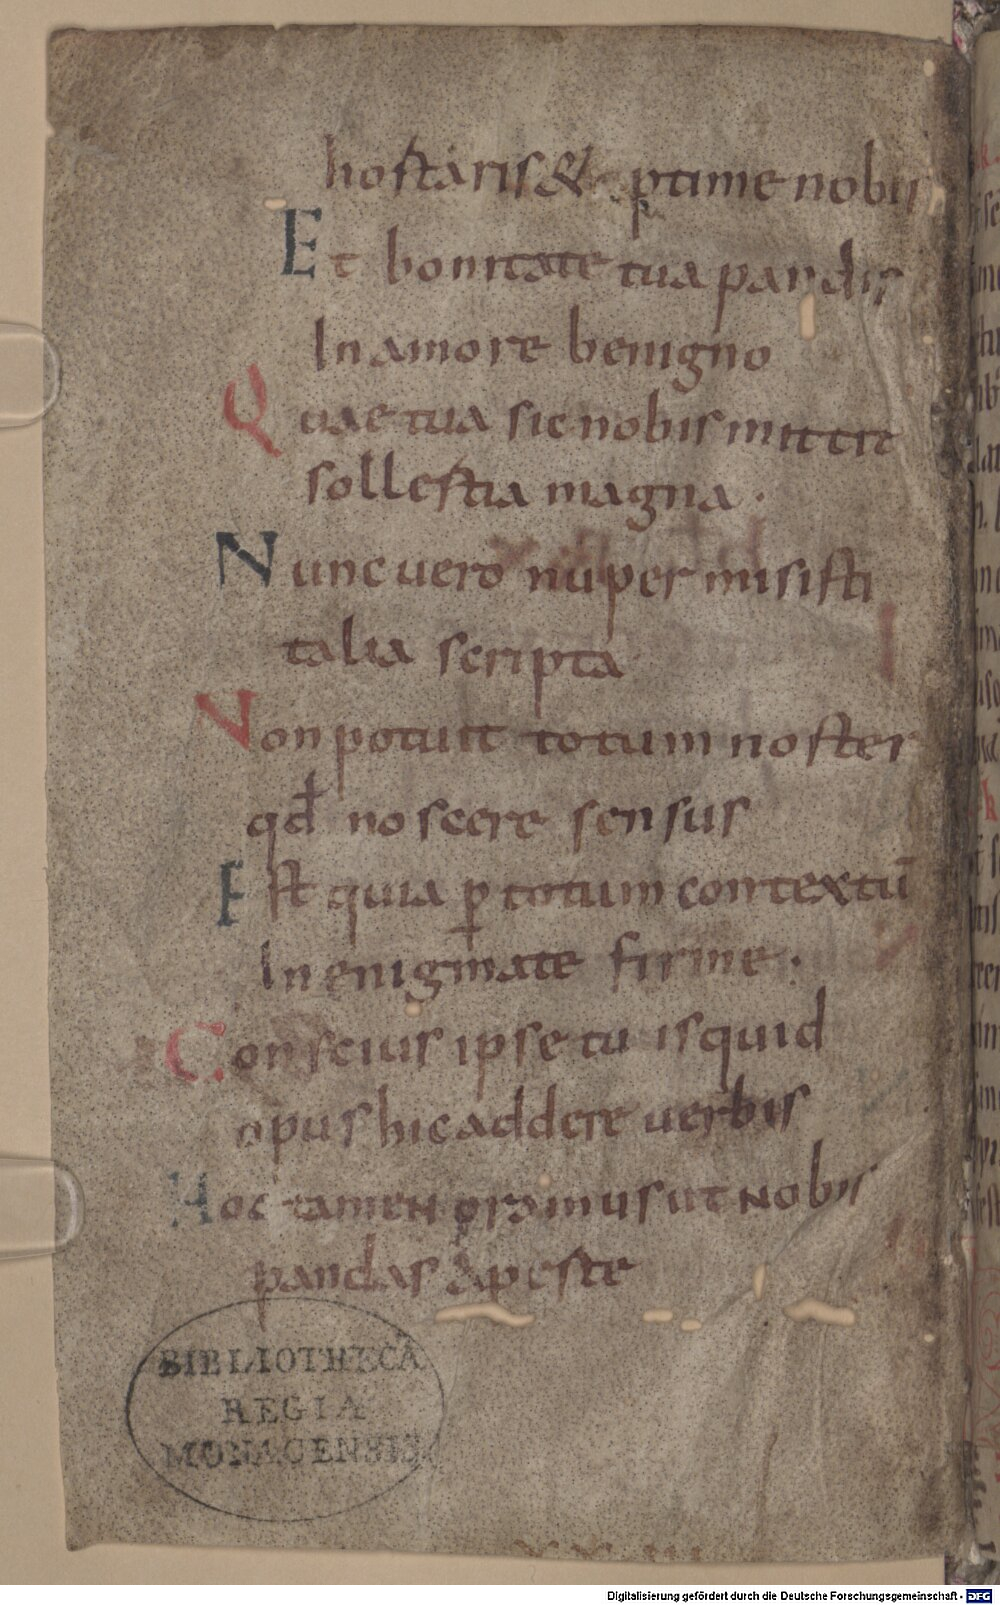 hostaris & ptime nobis
Et bonitate tua pandis
In amore benigno
Quae tua sic nobis mittit
sollestia magna ·
Nunc uero nuper misisti
talia scripta
Non potuit totum noster
qđ noscere sensus
Est quia ꝑ totum contextū
In enigmate firme ·
Conscius ipse tu is quid
opus hic addere uerbis
Hoc tamen oramus ut nobis
pandas aperte
BIBLIOTHECA
REGIA
MONACENSIS
Digitalisierung gefördert durch die Deutsche Forschungsgemeinschaft · DFG